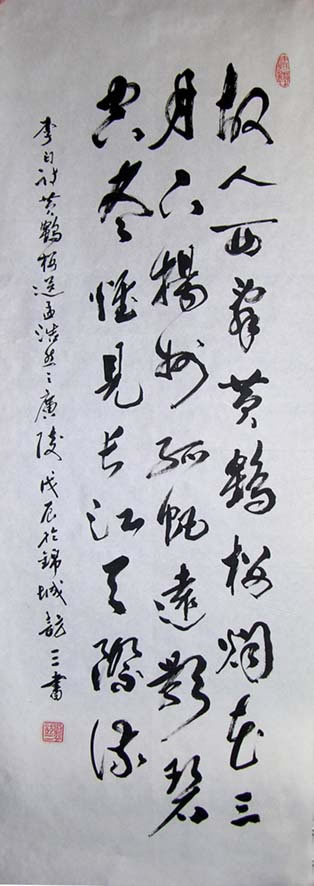 故人西辞黄鶴楼烟花三
月下揚州孤帆遠影碧
空尽惟見长江天際流
李白诗黄鶴楼送孟浩然之廣陵 戊辰於錦城龍三書